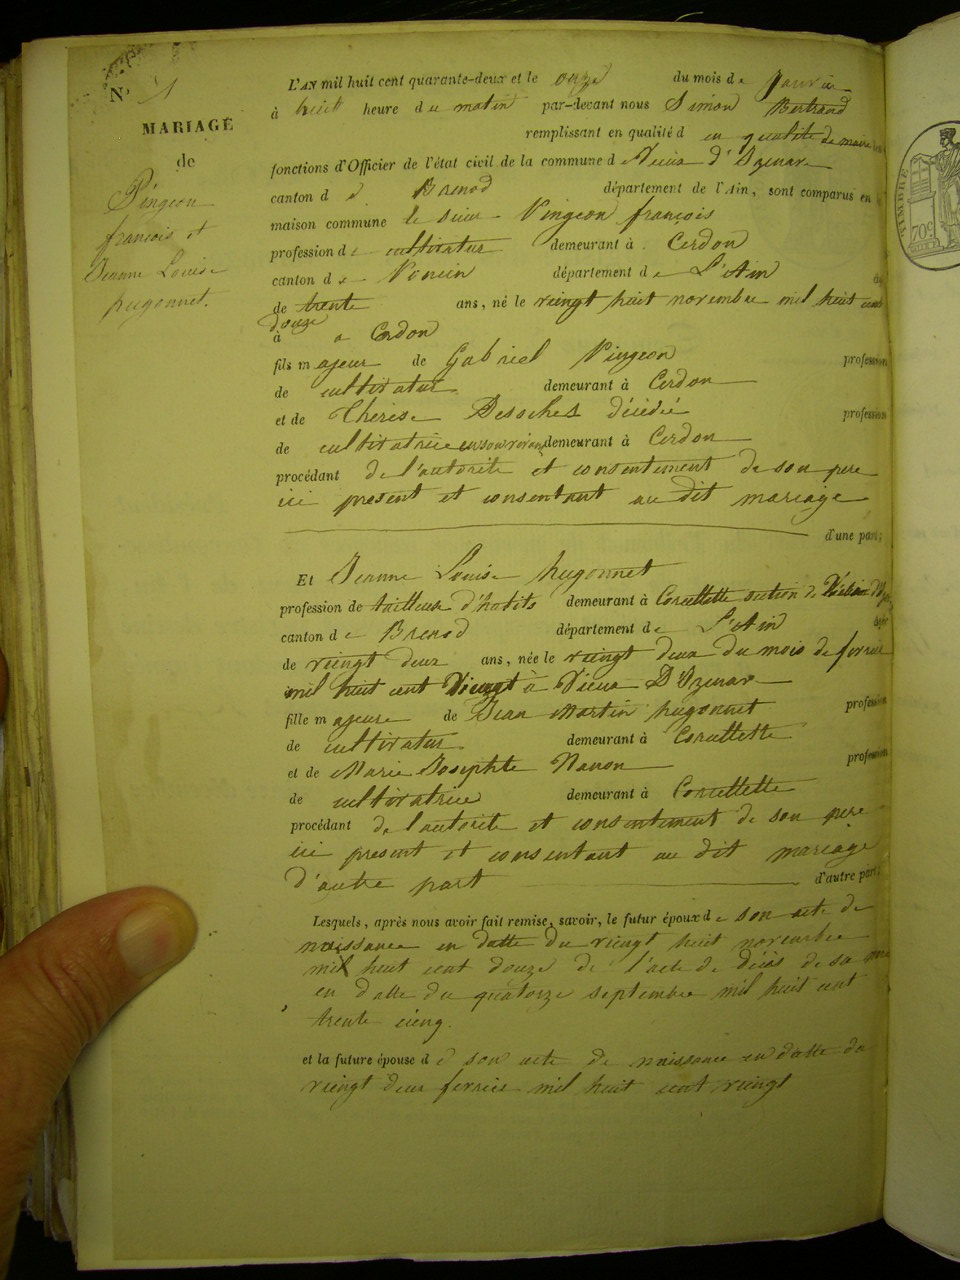 N.° 1
MARIAGE
de
Pingeon
francois et
Jeanne Louise
hugonnet.
L'AN mil huit cent quarante-deux et le onze du mois de Janvier
à huit heure du matin par-devant nous Simon Bertrand
remplissant en qualité d en qualité de maire les
fonctions d'Officier de l'état civil de la commune de Vieux d'Izenave
canton d e Brenod département de l'Ain, sont comparus en
maison commune le sieur Pingeon françois
profession de cultivateur demeurant à Cerdon
canton de Poncin département de L'Ain
de trente ans, né le veingt huit novembre mil huit cent
douze
à a Cerdon
fils majeur de Gabriel Pingeon profession
de cultivateur demeurant à Cerdon
et de Thérèse Desoches décédée profession
de cultivatrice en son vivant demeurant à Cerdon
procédant de l'autorite et consentement de son pere
ici present et consentant au dit mariage
d'une part;
Et Jeanne Louise hugonnet
profession de tailleuse d'habits demeurant à Corcellette section de Vieux d'Iz
canton de Brenod département de L'Ain âgée
de veingt deux ans, née le veingt deux du mois de fevrier
mil huit cent Vieingt à Vieux D'Izenave
fille majeure de Jean Martin hugonnet profession
de cultivateur demeurant à Corcellette
et de Marie Josephte Nanon profession
de cultivatrice demeurant à Corcellette
procédant de l'autorite et consentement de son pere
ici present et consentant au dit mariage
d'autre part d'autre part;
Lesquels, après nous avoir fait remise, savoir, le futur époux de son acte de
naissance en datte du veingt huit novembre
mil huit cent douze de l'acte de décès de sa mere
en datte du quatorze septembre mil huit cent
trente cinq.
et la future épouse d e son acte de naissance en datte du
veingt deux fevrier mil huit cent veingt
TIMBRE
70c